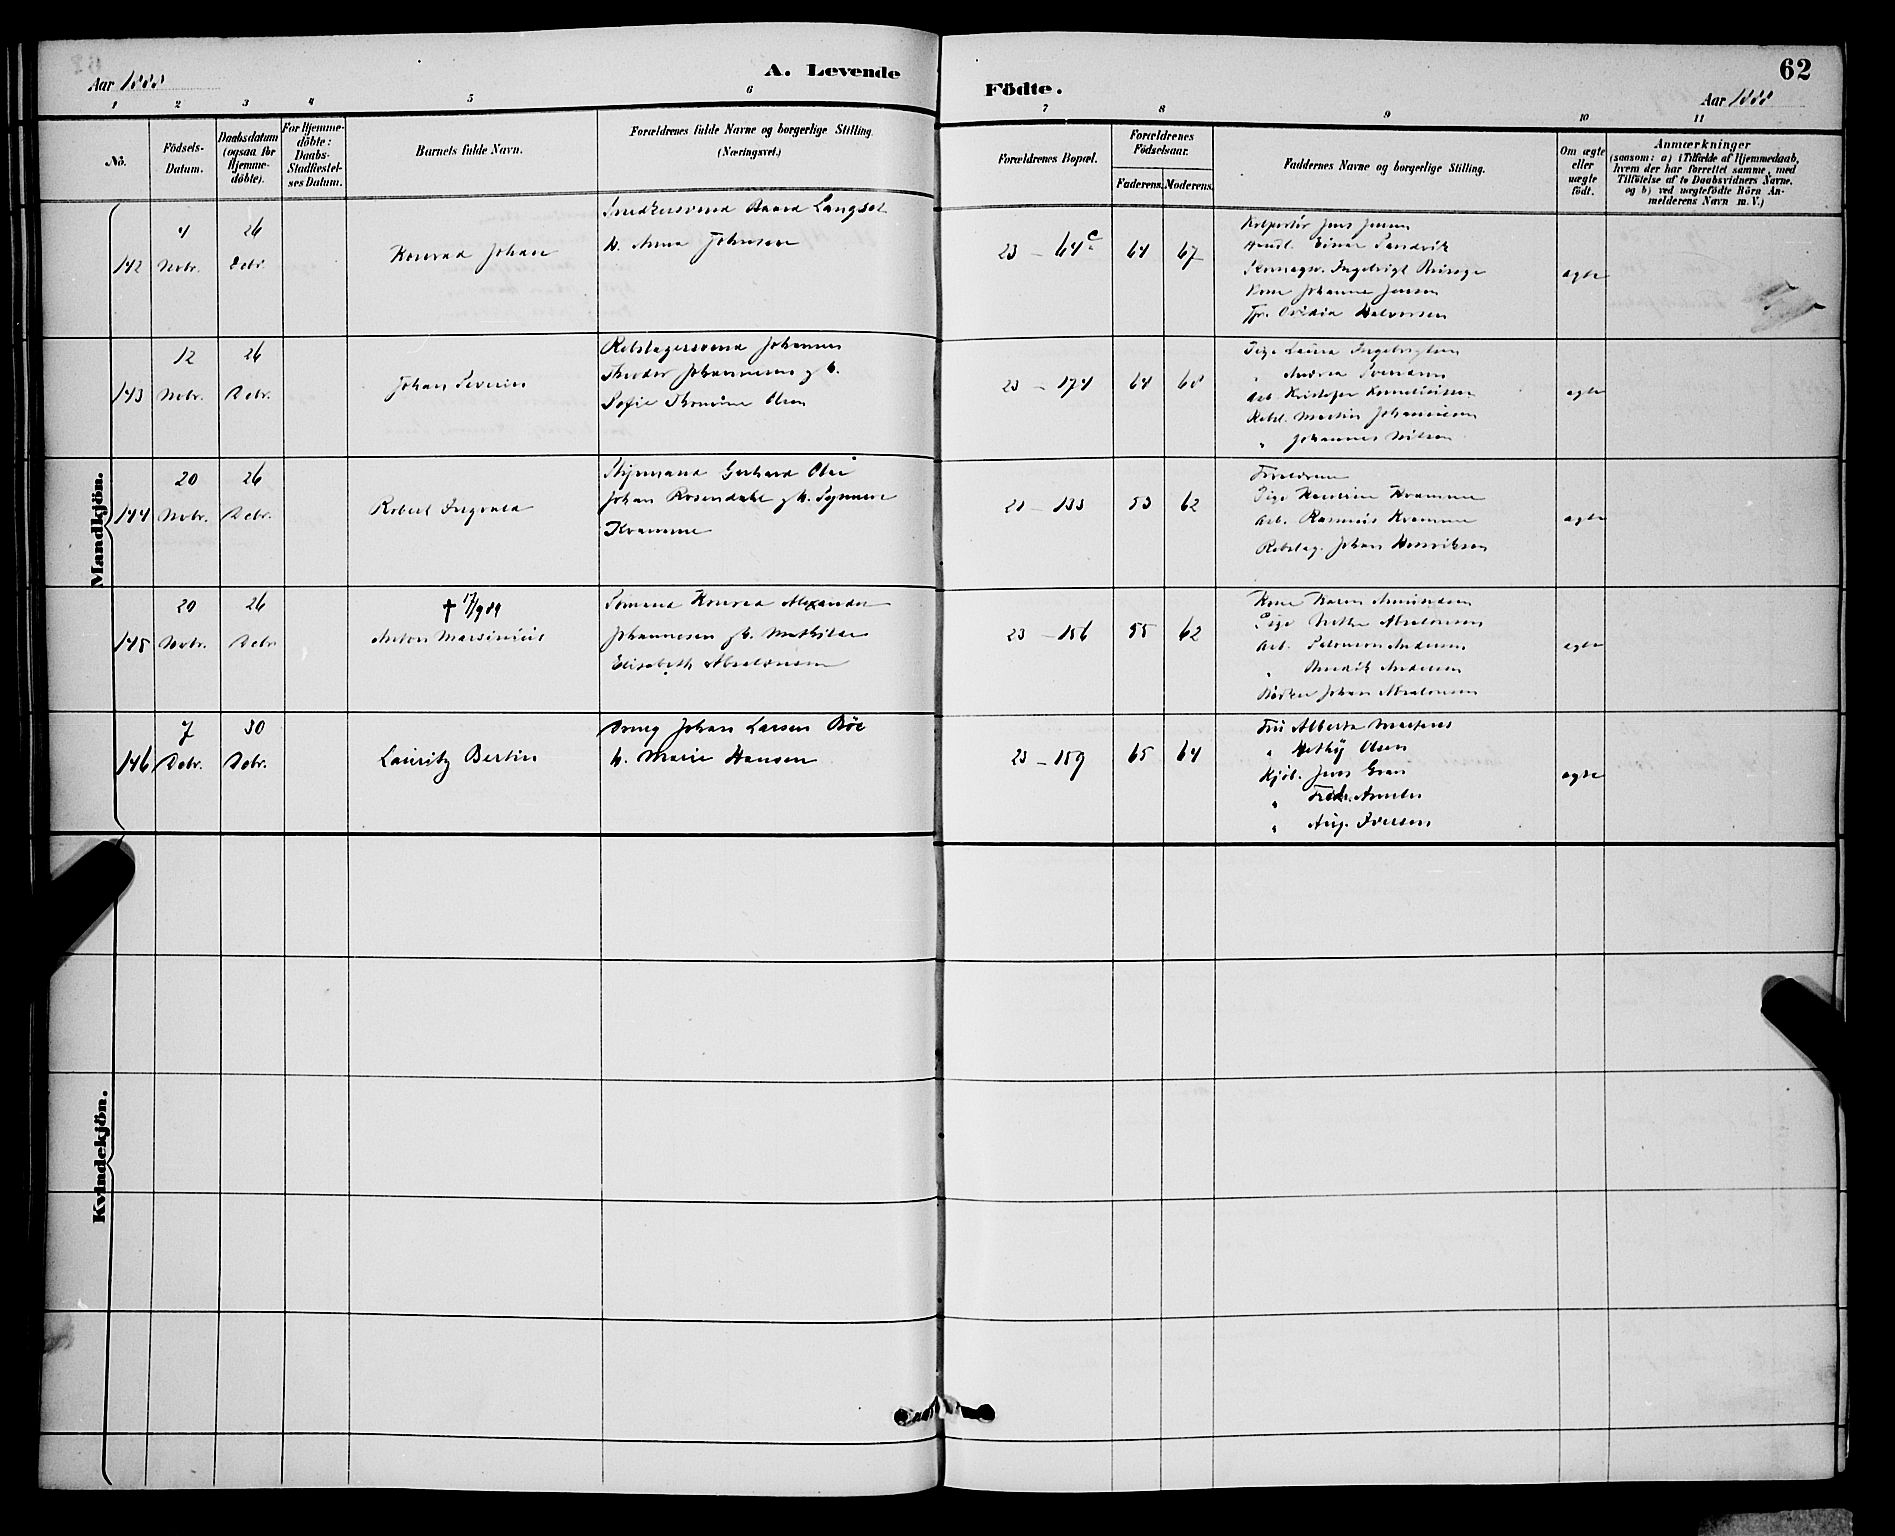 Aar 1888
A. Levende
Födte.
62
Aar 1888
1 2 3 4 5 6 7 8 9 10 11
No.
Födsels-
Datum.
Daabsdatum
(ogsaa for
Hjemme-
döbte).
For Hjemme-
döbte:
Daabs-
Stadfæstel-
ses Datum.
Barnets fulde Navn.
Forældrenes fulde Navne og borgerlige Stilling.
(Næringsvei.)
Forældrenes Bopæl.
Forældrenes
Födselsaar.
Faderens. Moderens.
Faddernes Navne og borgerlige Stilling.
Om ægte
eller
uægte
født.
Anmærkninger
(saasom: a) i Tilfælde af Hjemmedaab,
hvem der har forrettet samme, med
Tilføielse af to Daabsvidners Navne.
og b) ved uægtefödte Börn An-
melderens Navn m. V.)
Mandkjön.
142
4
Novbr.
26
Debr.
Konrad Johan
Snedkersvend Baard Langset
h. Anna Johnsen
23 - 64c
64
67
Kolportør Jens Jensen
Einar Sandvik
Kone Johanne Jensen
Halvorsen
ægte
143
12
Novbr.
26
Debr.
Johan Severin
Rebslagersvend Johannes
Theodor Johannesen g h.
Sofie Thomine Olsen
23 - 174
64
68
Pige Laura Ingebrigtsen
" Andrea Svendsen
Arb. Kristofer Korneliussen
Rebsl. Martin Johannesen
" Johannes Nilsen
ægte
144
20
Novbr.
26
Debr.
Robert Ingvald
Styrmand Gerhard Olai
Johan Rosendahl g h. Synneve
Kramme
23 - 133
53
62
Forældrene
Pige Kramme
Arb. Rasmus Kramme
Rebslag. Johan Henriksen
ægte
145
20
Novbr.
26
Debr.
† 17/9 89
Anton Marsinius
Sömand Konrad Alexander
Johannesen g h. Mathilde
Elisabeth Absalonsen
23 - 156
55
62
Kone Karen Amundsen
Pige Absalonsen
Arb. Salomon Andersen
" Andersen
Bödker Johan Absalonsen
ægte
146
7
Debr.
30
Debr.
Lauritz Bertin
Johan Larsen Böe
h. Marie Hansen
23 - 159
65
64
Fru Alberta Martens
" Olsen
Kjöb. Jens Gran
"
" Aug. Iversen
ægte
Kvindekjön.